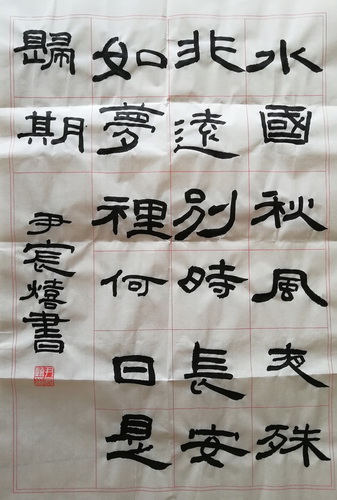 水國秋風夜殊
非遠別時長安
如夢裡何日是
歸期
尹宸熺書